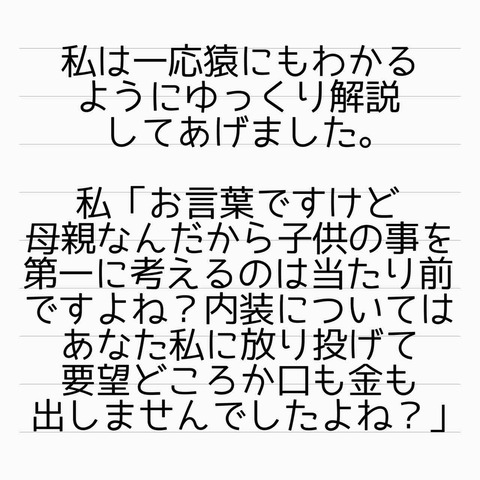 私は一応猿にもわかる
ようにゆっくり解説
してあげました。
私「お言葉ですけど
母親なんだから子供の事を
第一に考えるのは当たり前
ですよね？内装については
あなた私に放り投げて
要望どころか口も金も
出しませんでしたよね？」